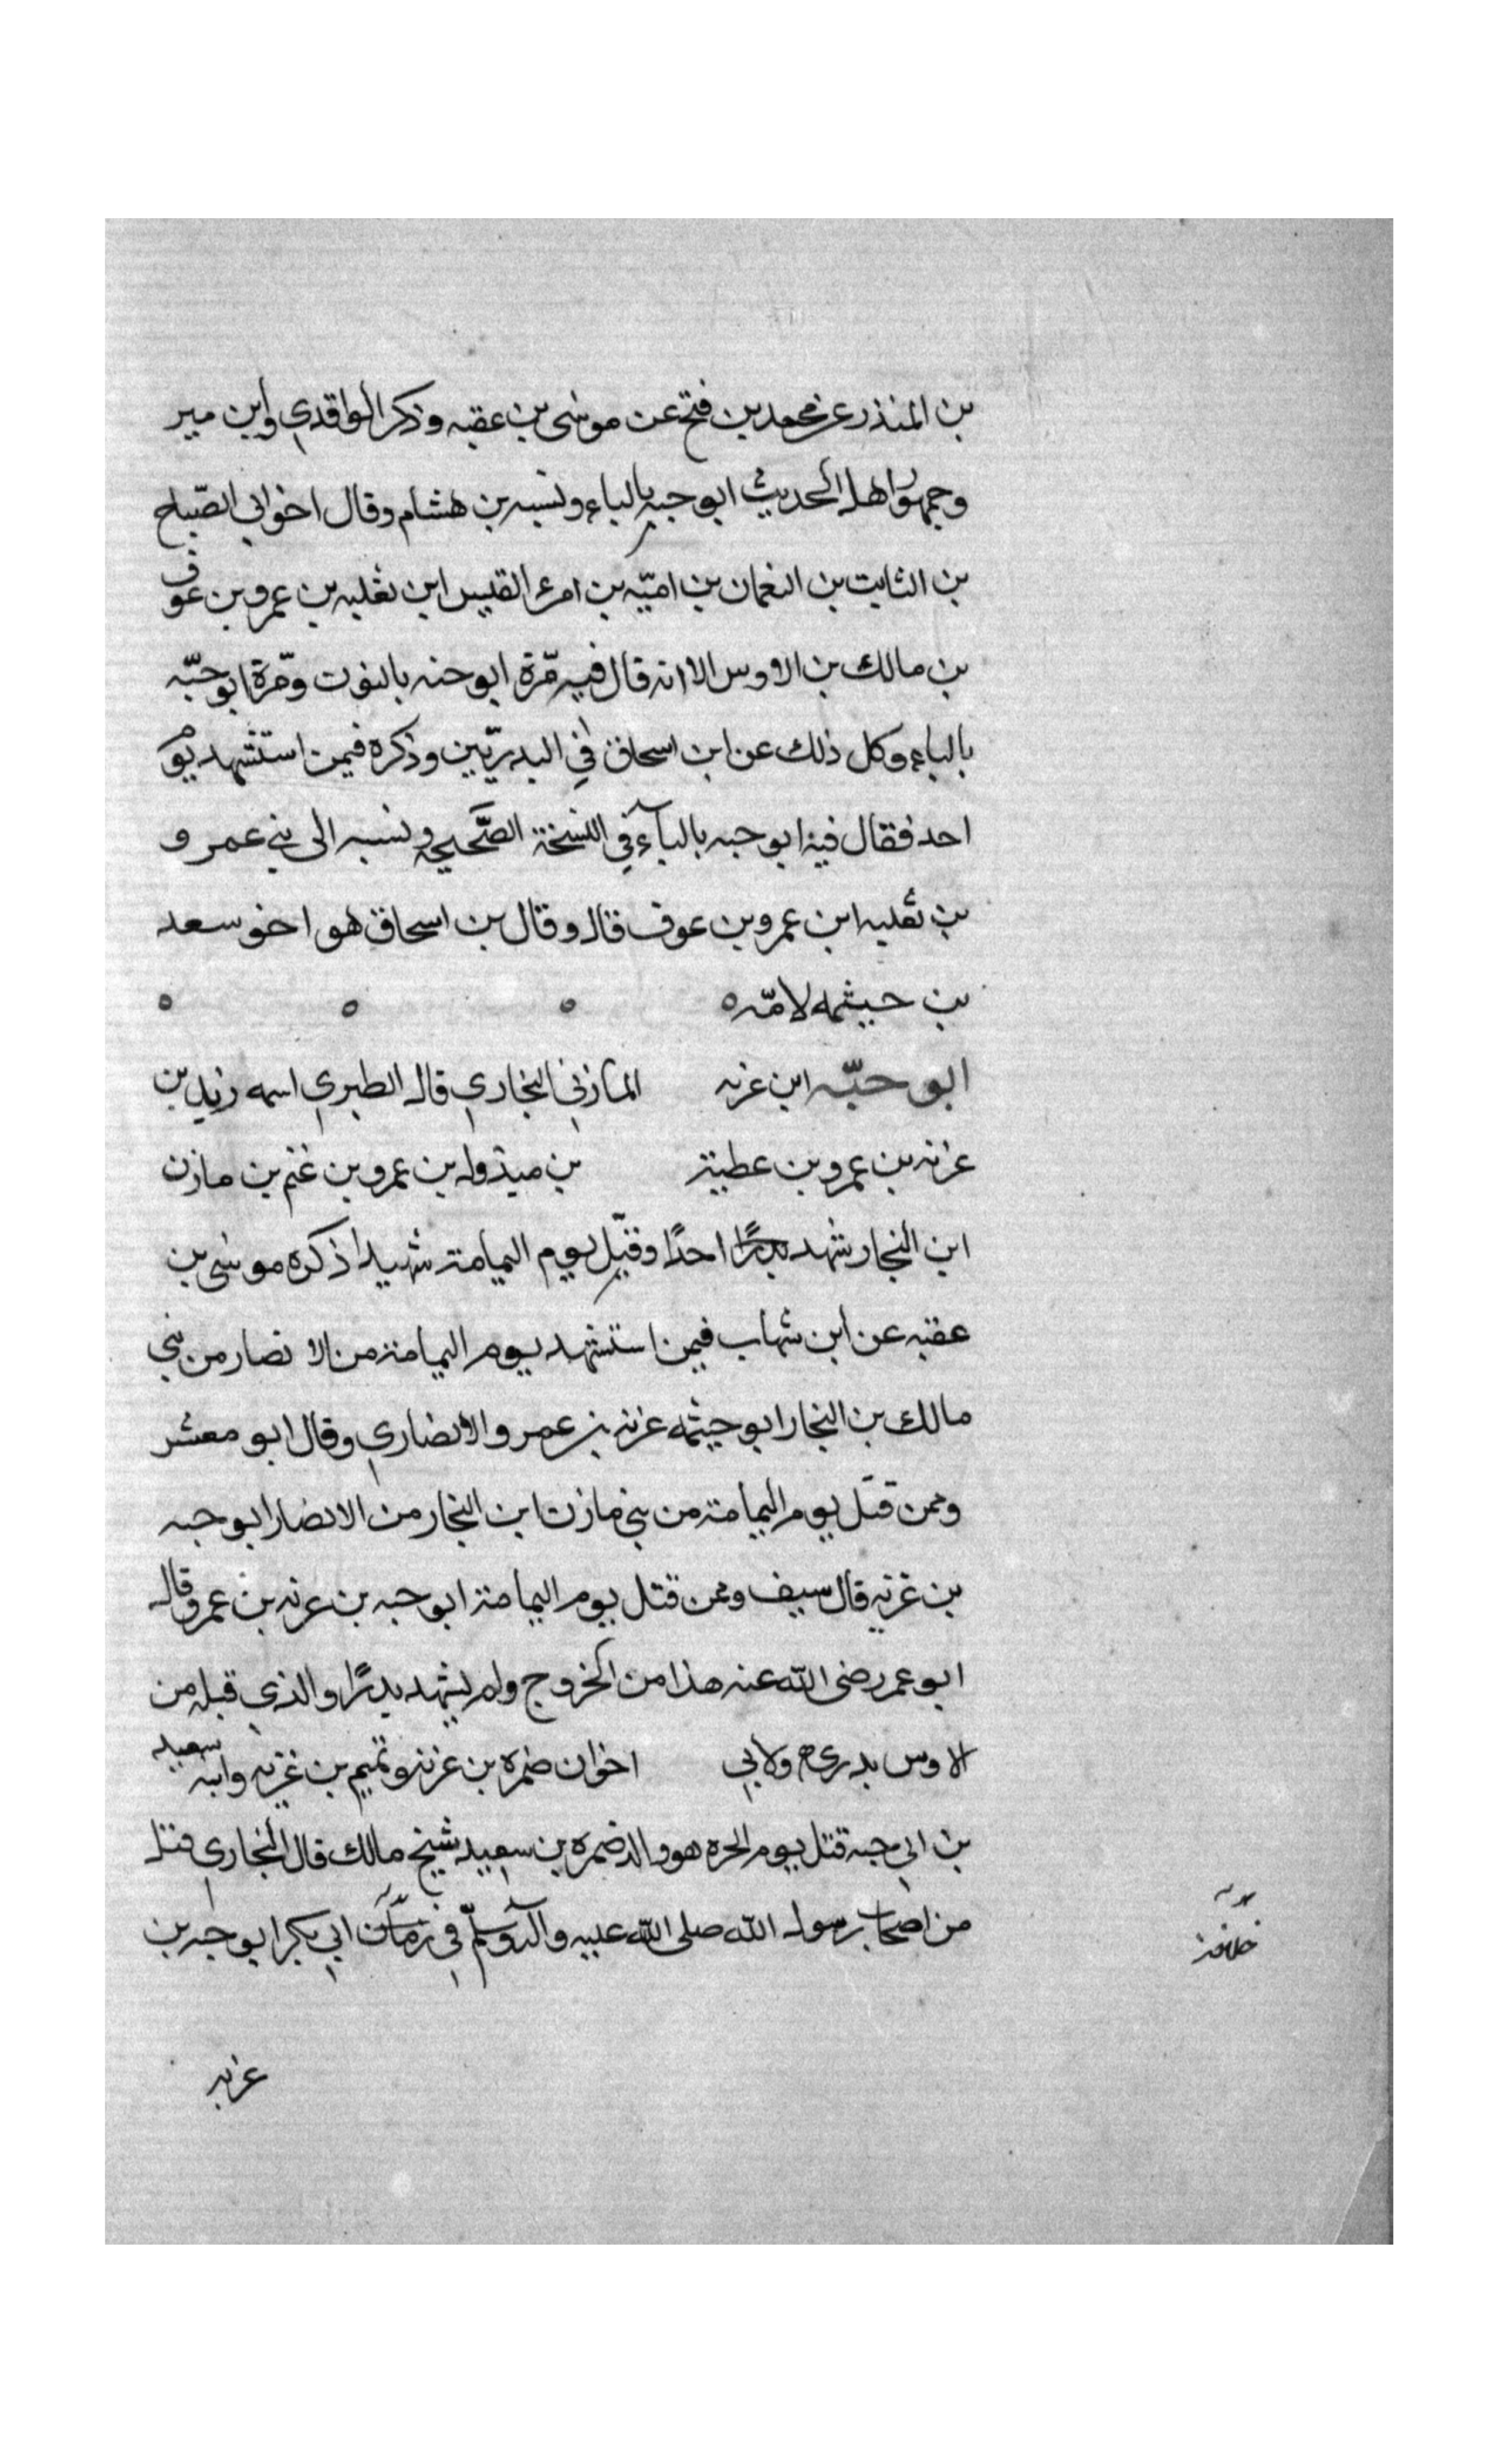 بن المنذر عن محمد بن فتح عن موسى بن عقبه وذكر الواقدي وابن مير
وجمهور اهل الحديث ابو حبه بالباء ونسبه بن هشام وقال اخو ابي الصباح
بن الثابت بن النعمان بن اميّه بن امرء القيس ابن ثعلبه بن عمرو بن عوف
بن مالك بن الاوس الا انه قال فيه مّرة ابو حنه بالنون ومّرة ابو حبّه
بالباء وكل ذلك عن ابن اسحاق في البدريّين وذكره فيمن استشهد يوم
احد فقال فيه ابو حبه بالبآء في النسخة الصَّحيحه ونسبه الى بني عمرو
بن ثعلبه ابن عمرو بن عوف قال وقال بن اسحاق هو اخو سعد
بن حيثمه لامّه
ابو حبّه ابن غزيه المازني النجاري قال الطبري اسمه زيد بن
غزيه بن عمرو بن عطية بن مبذول بن عمرو بن غنم بن مازن
ابن النجار شهد احدًا وقتل يوم اليمامة شهيدا ذكره موسى بن
عقبه عن ابن شهاب فيمن استشهد يوم اليمامة من الانصار من بني
مالك بن النجار ابو حيثمه غزيه بن عمرو الانصاري وقال ابو معشر
وممن قتل يوم اليمامة من بني مازن ابن النجار من الانصار ابو حبه
بن غزيه قال سيف وممن قتل يوم اليمامة ابو حبه بن غزيه بن عمرو قال
ابو عمر رضى الله عنه هذا من الخزوج ولم يشهد بدرًا والذي قبله من
الاوس بدري ولابي اخوان ضمره بن غزيه وتميم بن غزيه وابنه سعيد
بن ابي حبه قتل يوم الحره هو والد ضمره بن سعيد شيخ مالك قال البخاري قتل
من اصحاب رسول الله صلى الله عليه وآله وسلّم في زمان ابي بكر ابو حبه بن
خلافة
غزيه